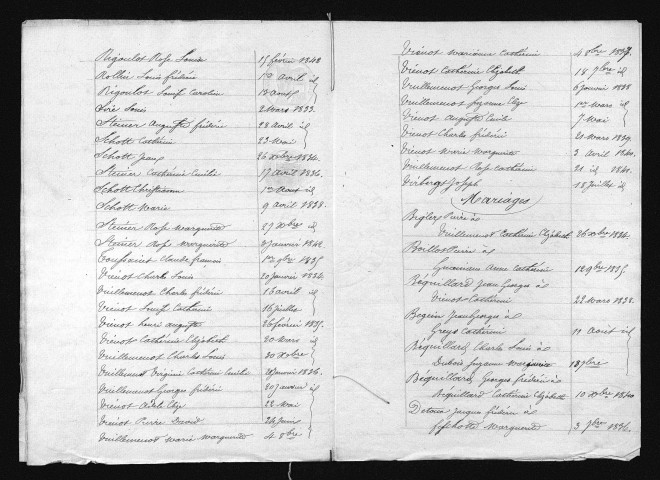 Rigoulot Rose Louise 15 février 1842
Rollin Louis frédéric 1er avril id
Rigoulot Louise Caroline 12 avril
Louis 2 Mars 1833.
Steiner Auguste frédéric 28 avril id
Schott Catherine 23 Mai
Schott Jean 26 Xbre 1834
Steiner Catherine Emilie 17 avril 1836
Schott Christianne 1er Aout id
Schott Marie 9 avril 1838.
Steiner Rose Marguerite 27 Xbre id
Steiner Rose Marguerite 2 janvier 1842
Toussaint Claude francois 1835
Viénot Charles Louis 20 janvier 1834
Vuillemenot Charles frédéric 13 avril id
Viénot Louise Catherine 16 juillet
Viénot henri auguste 26 février 1835.
Viénot Catherine Elizabeth 20 Mars id
Vuillemenot Charles Louis 30 Xbre
Vuillemenot Virginie Catherine Emilie janvier 1836.
Vuillemenot Georges frédéric 30 janvier id
Viénot Adele Elize 22 Mai
Viénot Pierre David 24 juin
Vuillemenot Marie Marguerite 4 8bre
Viénot Marianne Catherine 4 8bre 1837.
Viénot Catherine Elizabeth 18 7bre id
Vuillemenot Georges Louis 6 janvier 1838
Vuillemenot Suzanne Elize 1er Mars id
Viénot Auguste Emile 7 Mai
Viénot Charles frédéric 21 Mars 1839.
Viénot Marie Marguerite 3 Avril 1840.
Vuillemenot Rose Catherine 21 id 1841.
Verberg Joseph 18 juillet id
Mariages
Beglez Pierre à
Vuillemenot Catherine Elizabeth 26 Xbre 1834.
Boillot Pierre à
Anne Catherine 12 9bre 1835
Béquillard Jean Georges à
Viénot Catherine 22 Mars 1838.
Beguin Jean Georges à
Catherine 11 Aout id
Béquillard, Charles Louis à
Dubois Suzanne Marguerite 18 9bre
Béquillard, Georges frédéric à
Béquillard Catherine Elizabeth 10 Xbre 1840
Jacques frédéric à
Marguerite 3 7bre 1836.